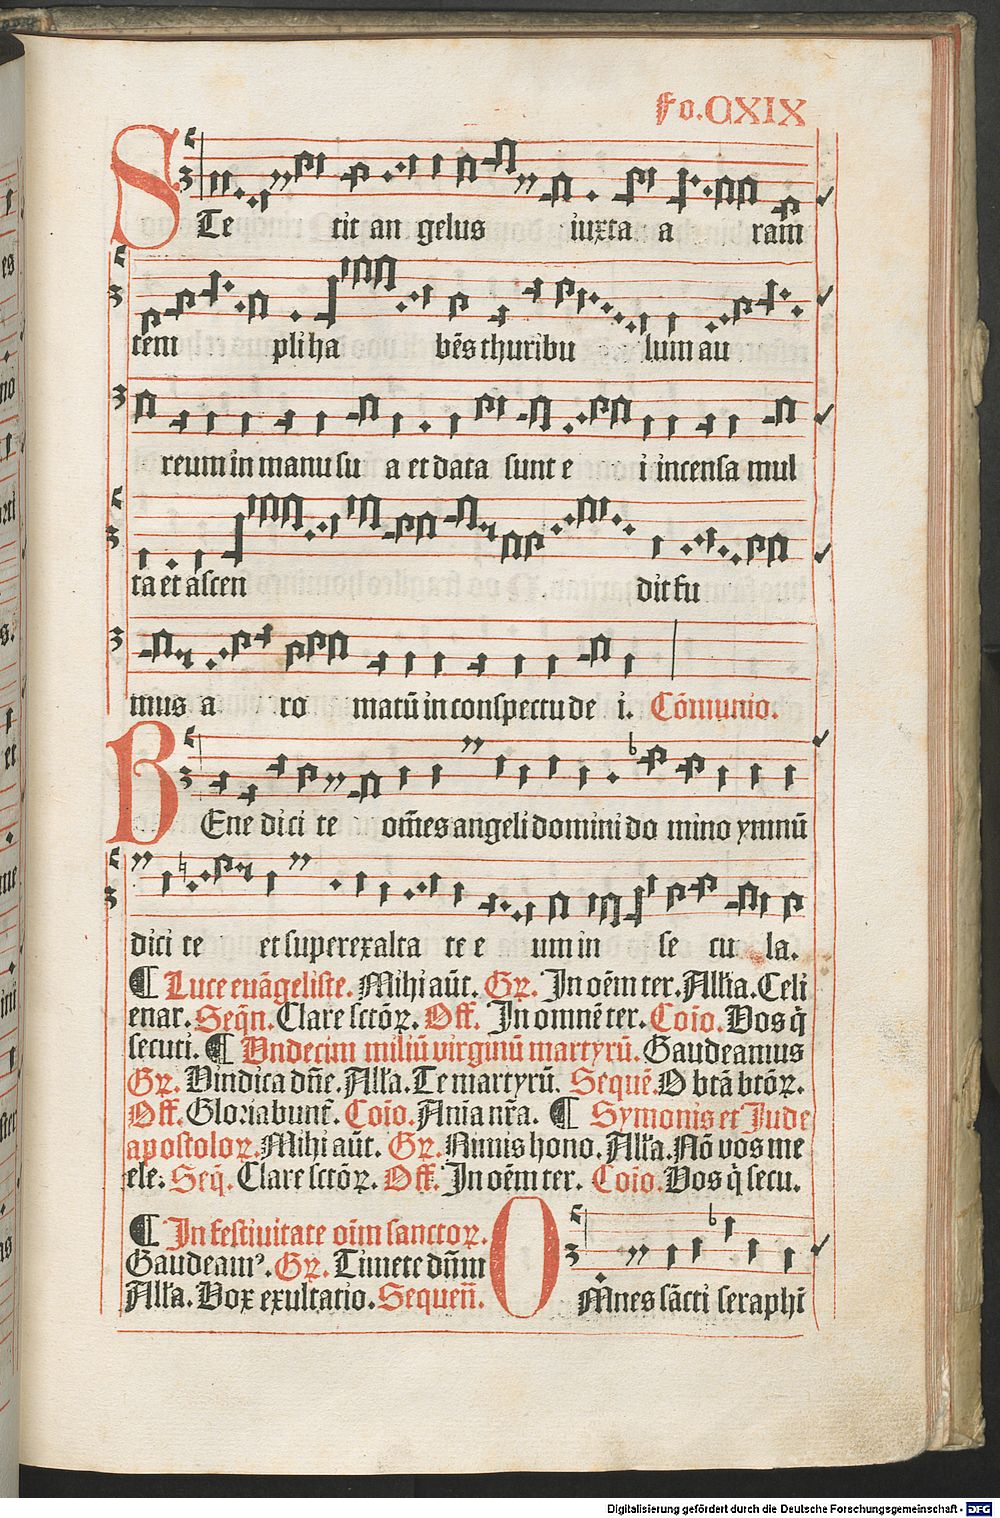 Fo.CXIX
STe tit an gelus iuxta a ram
tem pli ha bēs thuribu lum au
reum in manu su a et data sunt e i incensa mul
ta et ascen dit fu
mus a ro matū in conspectu de i. Cōmunio.
BEne dici te om̄es angeli domini do mino ymnū
dici te et superexalta te e um in se cu la.
¶ Luce euāgeliste. Mihi aūt. Gꝛ. In oēm ter. Alľa. Celi
enar. Seq̄n. Clare sctōꝝ. Off. In omnē ter. Coīo. Vos q̄
secuti. ¶ Vndecim miliū virginū martyrū. Gaudeamus
Gꝛ. Vindica dn̄e. Alľa. Te martyrū. Sequē. O btā btōꝝ.
Off. Gloriabunt̄. Coīo. Anīa nr̄a. ¶ Symonis et Jude
apostoloꝝ. Mihi aūt. Gꝛ. Nimis hono. Alľa. Nō vos me
ele. Seq̄. Clare sctōꝝ. Off. In oēm ter. Coīo. Vos q̄ secu.
¶ In festiuitate oīm sanctoꝝ.
Gaudeamꝰ. Gꝛ. Timete dn̄m
Alľa. Vox exultatio. Sequen̄.
OMnes sācti seraphī
Digitalisierung gefördert durch die Deutsche Forschungsgemeinschaft - DFG